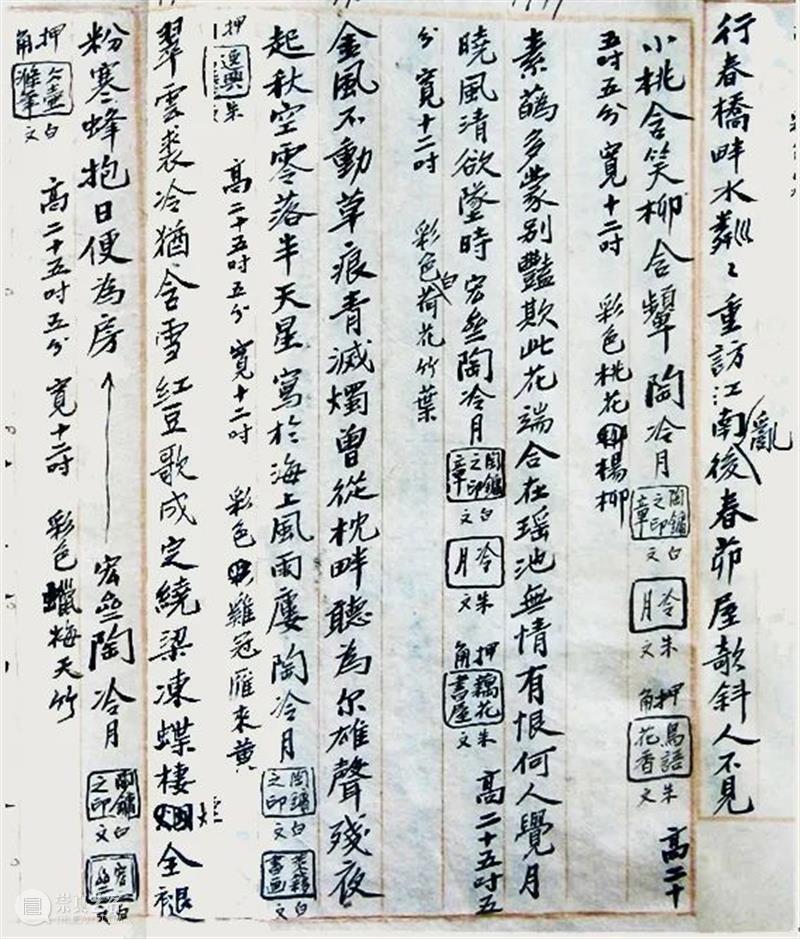 行春橋畔水粼〻重訪江南亂後春茆屋欹斜人不見
小桃含笑柳含顰 陶冷月 陶鏞之印章 白文 冷月 朱文 押角 鳥語花香 朱文 高二十
五吋五分 寬十二吋 彩色桃花楊柳
素蘤多蒙別豔欺此花端合在瑶池無情有恨何人覺月
曉風清欲墜時 宏垒陶冷月 陶鏞之印章 白文 冷月 朱文 押角 藕花書屋 朱文 高二十五吋五
分 寬十二吋 彩色白荷花竹葉
金風不動草痕青滅燭曾從枕畔聽為尔雄聲殘夜
起秋空零落半天星寫於海上風雨廔陶冷月 陶鏞之印 白文 書画 白文
押 朱 高二十五吋五分 寬十二吋 彩色雞冠雁來黄
翠雲裘冷猶含雪紅豆歌成定繞梁凍蝶棲煙全褪
粉寒蜂抱日便為房 宏垒陶冷月 陶鏞之印 白文 白文
押角 白文 高二十五吋五分 寬十二吋 彩色蠟梅天竹